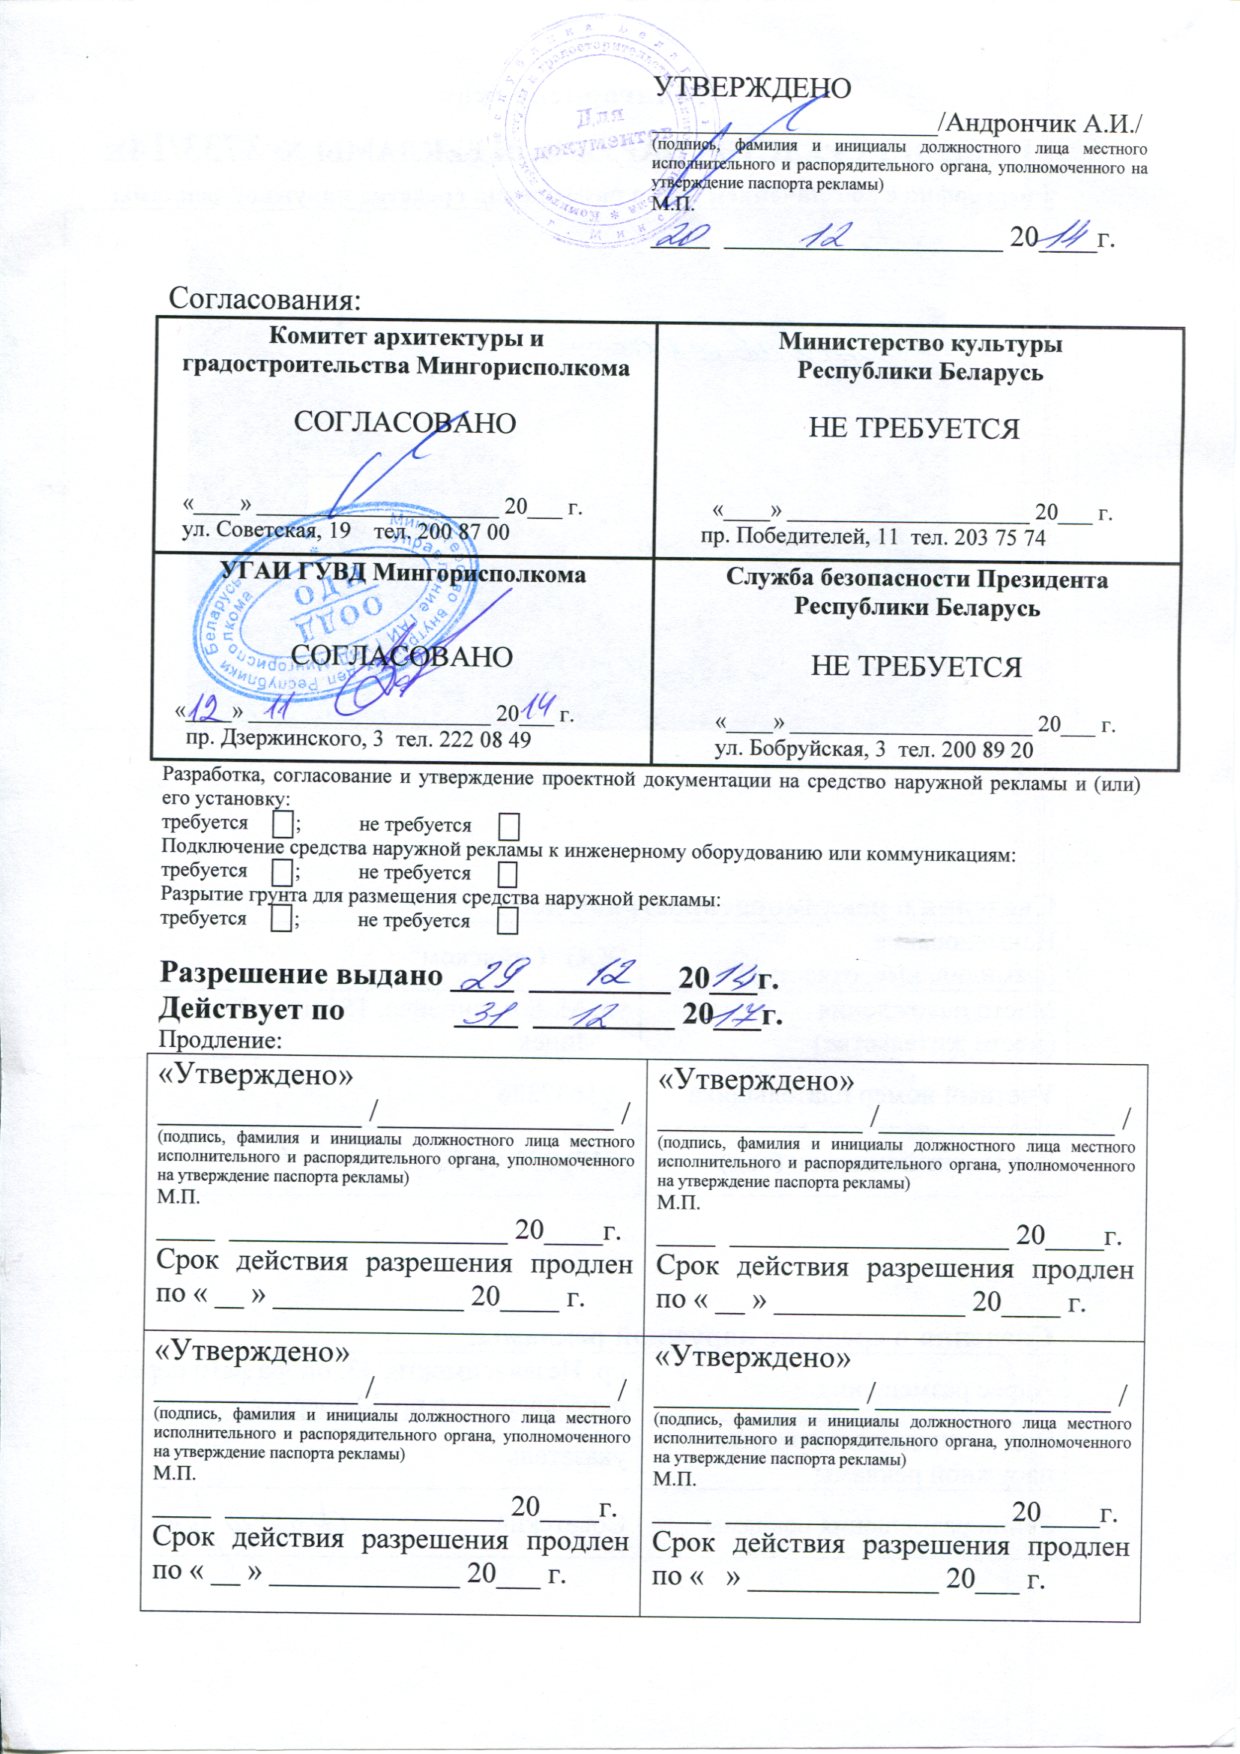 УТВЕРЖДЕНО
____________________/Андрончик А.И./
(подпись, фамилия и инициалы должностного лица местного
исполнительного и распорядительного органа, уполномоченного на
утверждение паспорта рекламы)
М.П.
20 12 2014г.
Для
документов
Согласования:
Комитет архитектуры и
градостроительства Мингорисполкома
СОГЛАСОВАНО
«____» ____________________ 20___ г.
ул. Советская, 19 тел. 200 87 00
Министерство культуры
Республики Беларусь
НЕ ТРЕБУЕТСЯ
«____» ____________________ 20___ г.
пр. Победителей, 11 тел. 203 75 74
УГАИ ГУВД Мингорисполкома
СОГЛАСОВАНО
«12» 11 2014 г.
пр. Дзержинского, 3 тел. 222 08 49
Служба безопасности Президента
Республики Беларусь
НЕ ТРЕБУЕТСЯ
«____» ____________________ 20___ г.
ул. Бобруйская, 3 тел. 200 89 20
Разработка, согласование и утверждение проектной документации на средство наружной рекламы и (или)
его установку:
требуется ; не требуется
Подключение средства наружной рекламы к инженерному оборудованию или коммуникациям:
требуется ; не требуется
Разрытие грунта для размещения средства наружной рекламы:
требуется ; не требуется
Разрешение выдано 29 12 2014г.
Действует по 31 12 2017г.
Продление:
«Утверждено»
______________ /________________ /
(подпись, фамилия и инициалы должностного лица местного
исполнительного и распорядительного органа, уполномоченного
на утверждение паспорта рекламы)
М.П.
____ ___________________ 20____г.
Срок действия разрешения продлен
по « __ » _____________ 20____ г.
«Утверждено»
______________ /________________ /
(подпись, фамилия и инициалы должностного лица местного
исполнительного и распорядительного органа, уполномоченного
на утверждение паспорта рекламы)
М.П.
____ ___________________ 20____г.
Срок действия разрешения продлен
по « __ » _____________ 20____ г.
«Утверждено»
______________ /________________ /
(подпись, фамилия и инициалы должностного лица местного
исполнительного и распорядительного органа, уполномоченного
на утверждение паспорта рекламы)
М.П.
____ ___________________ 20____г.
Срок действия разрешения продлен
по « __ » _____________ 20___ г.
«Утверждено»
______________ /________________ /
(подпись, фамилия и инициалы должностного лица местного
исполнительного и распорядительного органа, уполномоченного
на утверждение паспорта рекламы)
М.П.
____ ___________________ 20____г.
Срок действия разрешения продлен
по « » _____________ 20___ г.